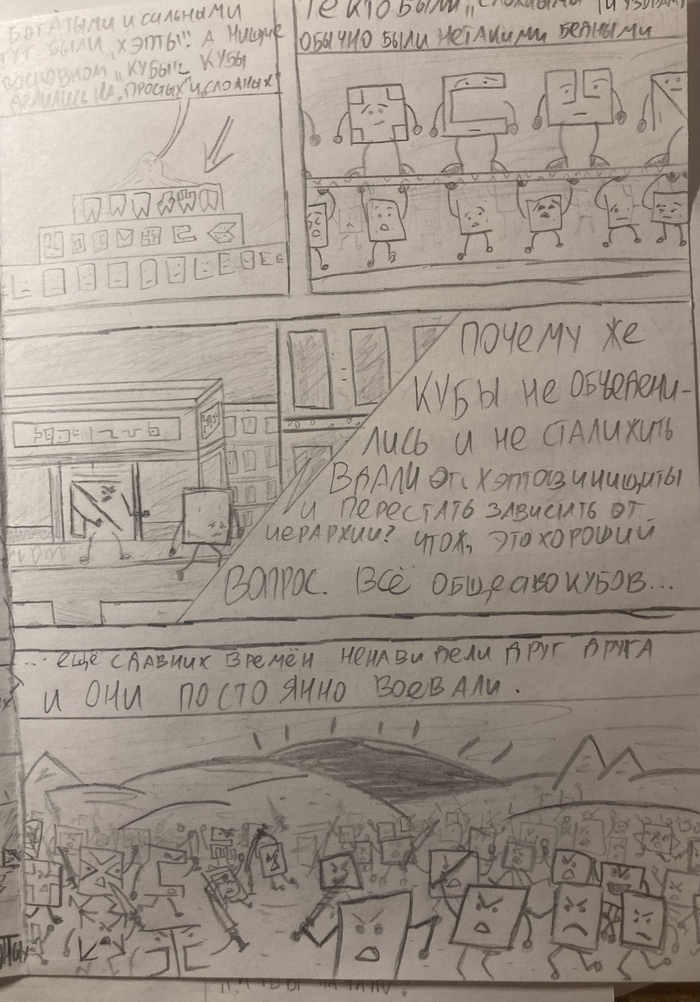 БОГАТЫМИ И СИЛЬНЫМИ
ТУТ БЫЛИ „ХЭПТЫ". А НИЩИЕ
ВОСНОВНОМ „КУБЫ". КУБЫ
ДЕЛИЛИСЬ НА „ПРОСТЫХ" И „СЛОЖНЫХ"
ТЕ КТО БЫЛИ „СЛОЖНЫМИ"
ОБЫЧНО БЫЛИ НЕТАКИМИ БЕДНЫМИ
ПОЧЕМУ ЖЕ
КУБЫ НЕ ОБЪЕДЕНИ-
ЛИСЬ И НЕ СТАЛИ ЖИТЬ
ВДАЛИ ОТ ХЭПТОВ И НИЩИТЫ
И ПЕРЕСТАТЬ ЗАВИСИТЬ ОТ
ИЕРАРХИИ? ЧТОЖ, ЭТО ХОРОШИЙ
ВОПРОС. ВСЁ ОБЩЕСТВО КУБОВ...
... ЕЩЁ СДАВНИХ ВРЕМЁН НЕНАВИДЕЛИ ДРУГ ДРУГА
И ОНИ ПОСТОЯННО ВОЕВАЛИ.